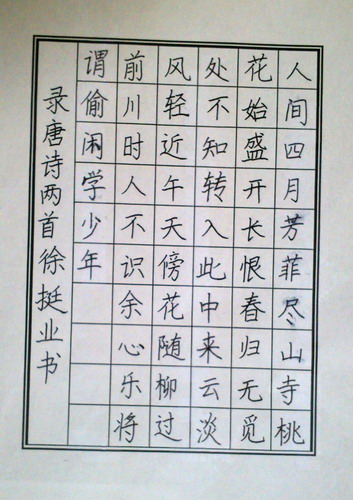 人间四月芳菲尽山寺桃
花始盛开长恨春归无觅
处不知转入此中来云淡
风轻近午天傍花随柳过
前川时人不识余心乐将
谓偷闲学少年
录唐诗两首徐挺业书